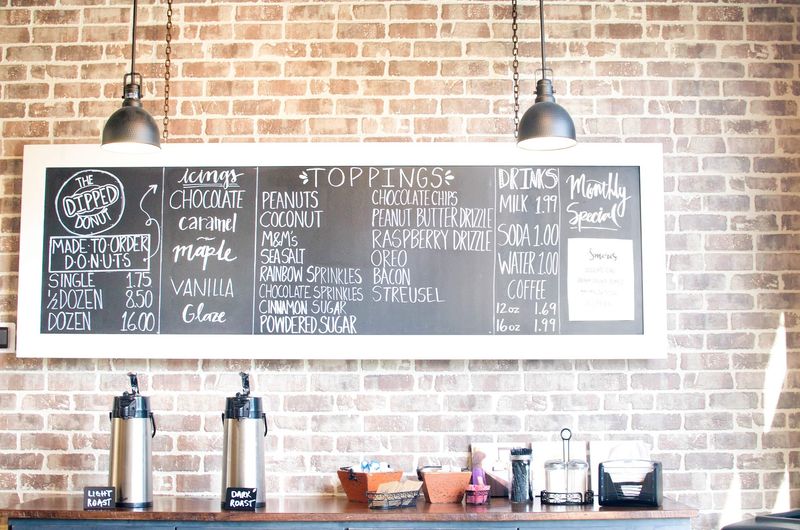 THE
DIPPED
DONUT
MADE-TO-ORDER
D-O-N-U-T-S
SINGLE 1.75
½ DOZEN 8.50
DOZEN 16.00
icings
CHOCOLATE
caramel
maple
VANILLA
Glaze
TOPPINGS
PEANUTS
COCONUT
M&M's
SEA SALT
RAINBOW SPRINKLES
CHOCOLATE SPRINKLES
CINNAMON SUGAR
POWDERED SUGAR
CHOCOLATE CHIPS
PEANUT BUTTER DRIZZLE
RASPBERRY DRIZZLE
OREO
BACON
STREUSEL
DRINKS
MILK 1.99
SODA 1.00
WATER 1.00
COFFEE
12 oz 1.69
16 oz 1.99
Monthly
Special
S'mores
LIGHT
ROAST
DARK
ROAST